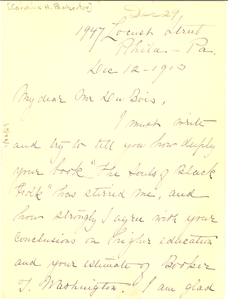 Dec 29,
1947 Locust Street
Phila - Pa.
Dec 12 - 1903
My dear Mr Du Bois,
I must write
and try to tell you how deeply
your book "The Souls of Black
Folk" has stirred me, and
how strongly I agree with your
conclusions on higher education
and your estimate of Booker
T. Washington. I am glad